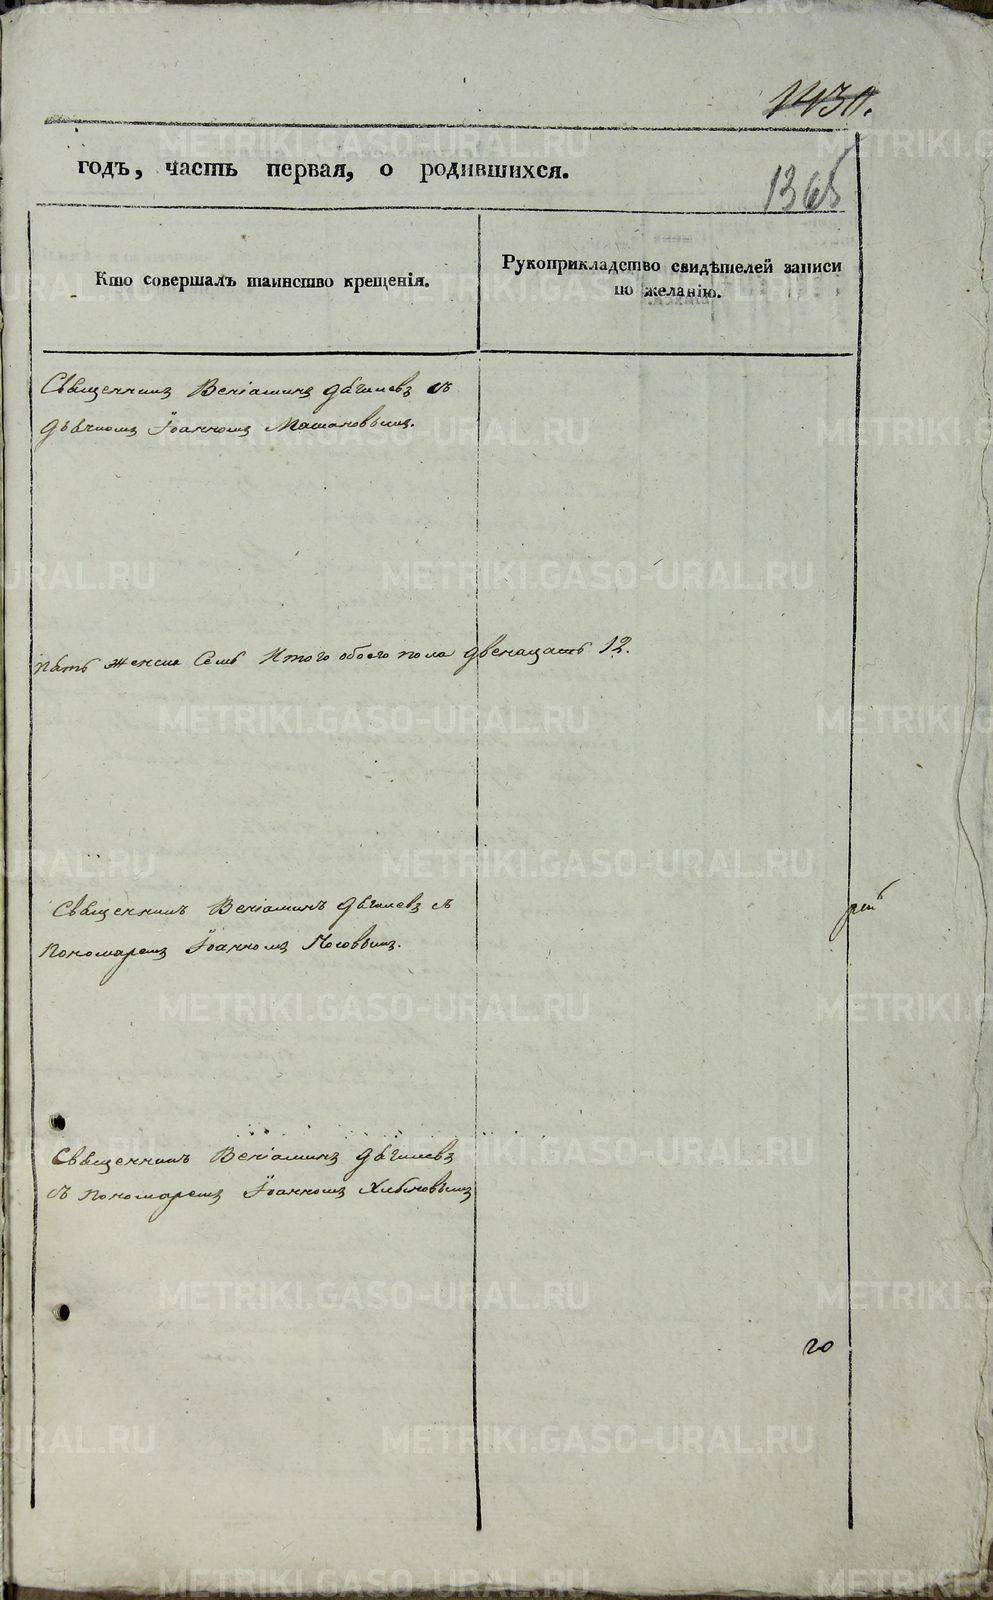 1430.
годъ, часть первая, о родившихся.
1365
Кто совершалъ таинство крещенія.
Рукоприкладство свидѣтелей записи
по желанію.
Священникъ Веніаминъ Дягилевъ съ
дьячкомъ Іоанномъ
пять женска семь Итого обоего пола двенацать 12.
Священникъ Веніаминъ Дягилевъ съ
Пономаремъ Іоанномъ
Священникъ Веніаминъ Дягилевъ
съ пономаремъ Іоанномъ
го
METRIKI.GASO-URAL.RU